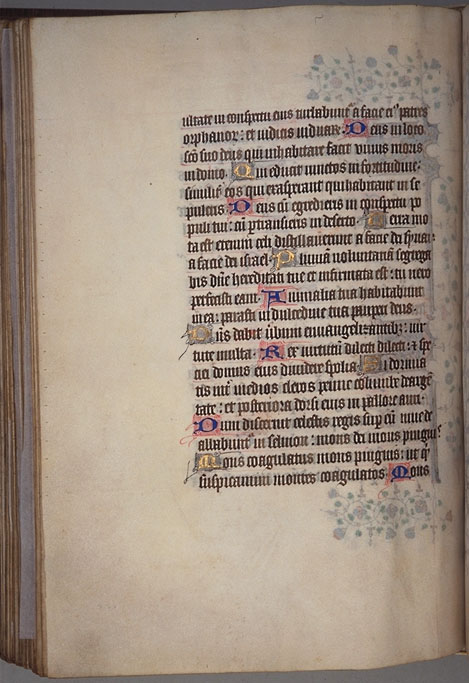 ultate in conspectu eius turbabunt᷑ a facie ei⁹ patris
orphanor: et iudicis viduarꝝ. Deus in loco
sc̄o suo deus qui inhabitare facit vnius moris
in domo. Qui educit uinctos in fortitudine:
similit᷑ eos qui exasperant qui habitant in se
pulcris. Deus cū egredieris in conspectu po
puli tui: cū ptransieris in deserto. Terra mo
ta est etenim celi distillauerunt a facie dei synai:
a facie dei israel. Pluuiā uoluntariā segrega
bis deus hereditati tue et infirmata est: tu uero
perfecisti eam. Animalia tua habitabunt
in ea: parasti in dulcedine tua pauperi deus.
Dn̄s dabit uerbum euuangelizantibꝫ: uir
tute multa. Rex uirtutū dilecti dilecti: ⁊ spe
ciei domus eius diuidere spolia. Si dormia
tis int᷑ medios cleros penne columbe deargē
tate: et posteriora dorsi eius in pallore auri.
Dum discernit celestis reges sup eā niue de
albabunt᷑ in selmon: mons dei mons pinguis
Mons coagulatus mons pinguis: ut qͥd
suspicamini montes coagulatos. Mons